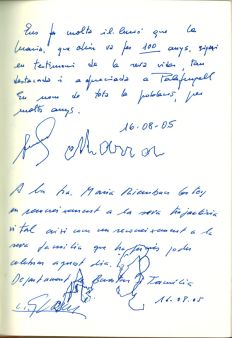 Ens fa molta il·lusió que la
Maria, que avui fa 100 anys, sigui
en testimoni de la seva vida, tan
destacada i apreciada a Palafrugell
En nom de tota la població, per
molts anys.
16-08-05
A la Sra. Maria
en reconeixement a la seva trajectòria
vital així com un reconeixement a la
seva família que ha pogut
celebrar aquest dia.
Departament de Benestar i Família
16.08.05